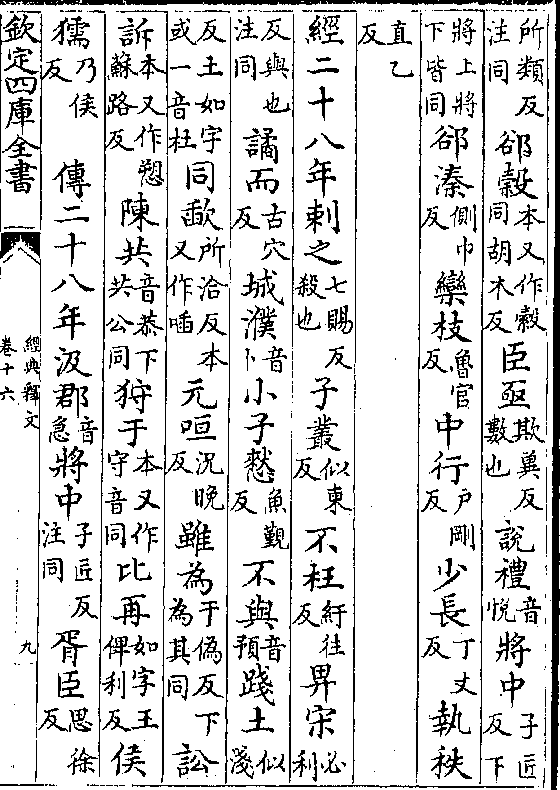 所類反注同郤縠本又作縠同胡木反臣亟欺冀反數也說禮音悅將中子匠反下
將上將下皆同郤溱側巾反欒枝魯官反中行戶剛反少長丁丈反執秩
直乙反
經二十八年刺之七賜反殺也子叢似東反不枉紆往反畀宋必利
反與也注同譎而古穴反城濮音卜小子憖魚覲反不與音預踐土似淺
反土如字或一音杜同歃所洽反本又作喢元咺況晚反雖為于偽反下為其同訟
訴本又作愬蘇路反陳共音恭下共公同狩于本又作守音同比再如字王俾利反侯
獳乃侯反傳二十八年汲郡音急將中子匠反注同胥臣思徐反
欽定四庫全書
經典釋文
卷十六
九